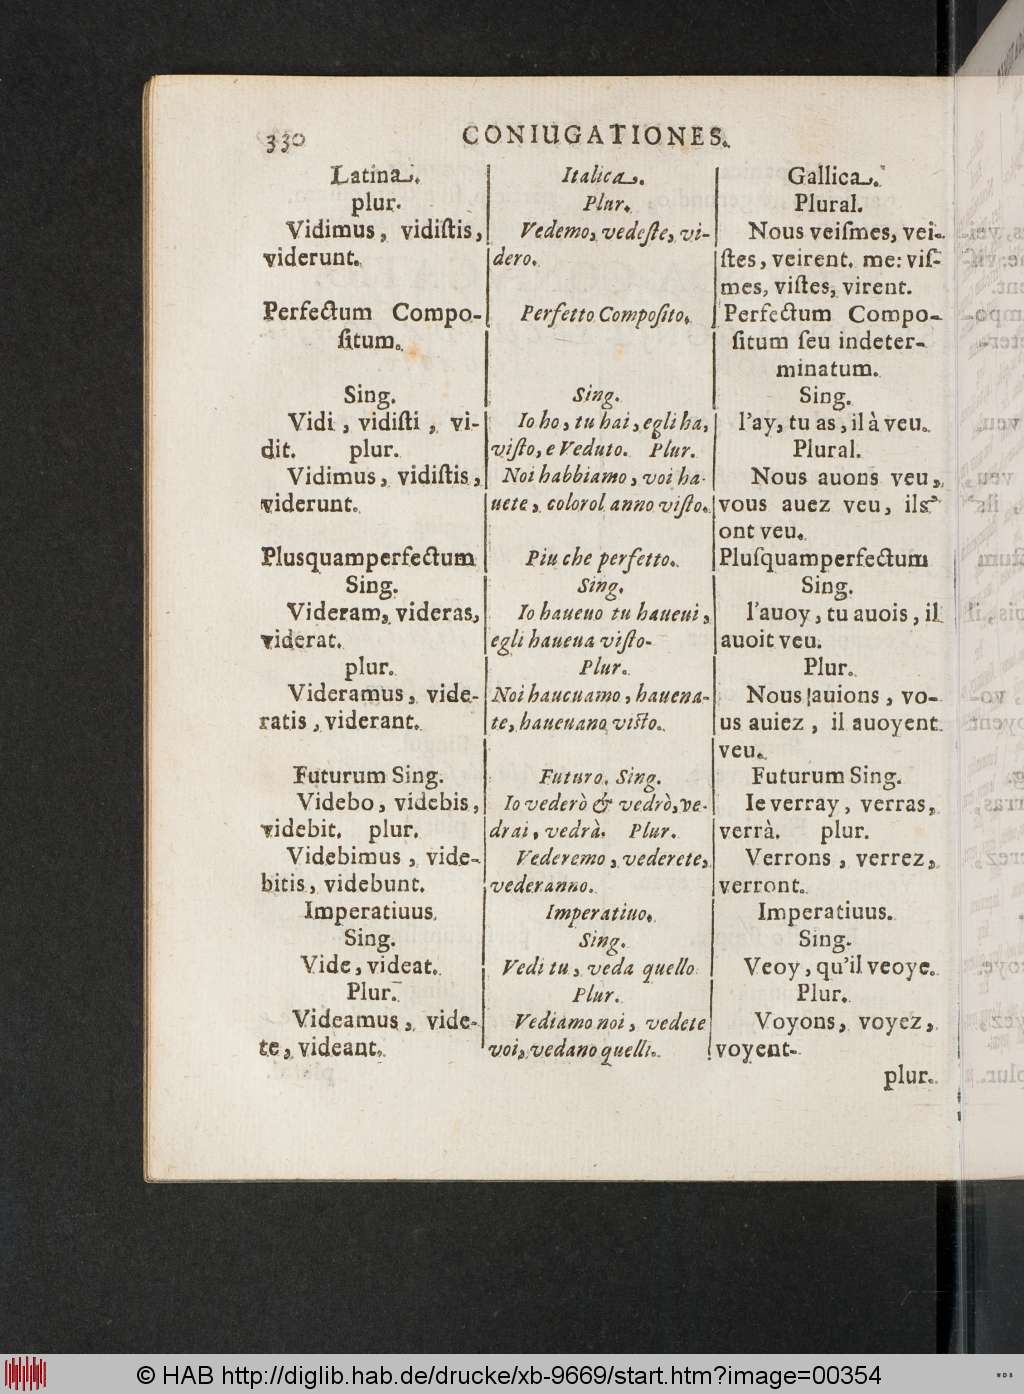 330 CONIUGATIONES.
Latina.
plur.
Vidimus, vidiſtis,
viderunt.
Perfectum Compo-
ſitum.
Sing.
Vidi, vidiſti, vi-
dit. plur.
Vidimus, vidiſtis,
viderunt.
Plusquamperfectum
Sing.
Videram, videras,
viderat.
plur.
Videramus, vide-
ratis, viderant.
Futurum Sing.
Videbo, videbis,
videbit. plur.
Videbimus, vide-
bitis, videbunt.
Imperatiuus.
Sing.
Vide, videat.
Plur.
Videamus, vide-
te, videant.
Italica.
Plur.
Vedemo, vedeſte, vi-
dero.
Perfetto Compoſito.
Sing.
Io ho, tu hai, egli ha,
viſto, e Veduto. Plur.
Noi habbiamo, voi ha-
uete, colorol anno viſto.
Piu che perfetto.
Sing.
Io haueuo tu haueui,
egli haueua viſto-
Plur.
Noi haucuamo, hauena-
te, haueuano viſto.
Futuro. Sing.
Io vederò & vedrò, ve-
drai, vedrà. Plur.
Vederemo, vederete,
vederanno.
Imperatiuo.
Sing.
Vedi tu, veda quello
Plur.
Vediamo noi, vedete
voi, vedano quelli.
Gallica.
Plural.
Nous veiſmes, vei-
ſtes, veirent. me: viſ-
mes, viſtes, virent.
Perfectum Compo-
ſitum ſeu indeter-
minatum.
Sing.
I'ay, tu as, il à veu.
Plural.
Nous auons veu,
vous auez veu, ils
ont veu.
Pluſquamperfectum
Sing.
I'auoy, tu auois, il
auoit veu.
Plur.
Nous auions, vo-
us auiez, il auoyent
veu.
Futurum Sing.
Ie verray, verras,
verrà. plur.
Verrons, verrez,
verront.
Imperatiuus.
Sing.
Veoy, qu'il veoye.
Plur.
Voyons, voyez,
voyent-
plur.
© HAB http://diglib.hab.de/drucke/xb-9669/start.htm?image=00354